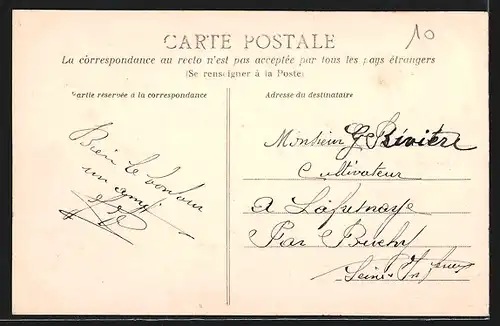 10
CARTE POSTALE
La correspondance au recto n'est pas acceptée par tous les pays étrangers
(Se renseigner à la Poste)
Partie réservée à la correspondance
Adresse du destinataire
Bien le bonjour
un ami
Monsieur G Bévière
Cultivateur
A Lafresnaye
Par Buchy
Seine Infre